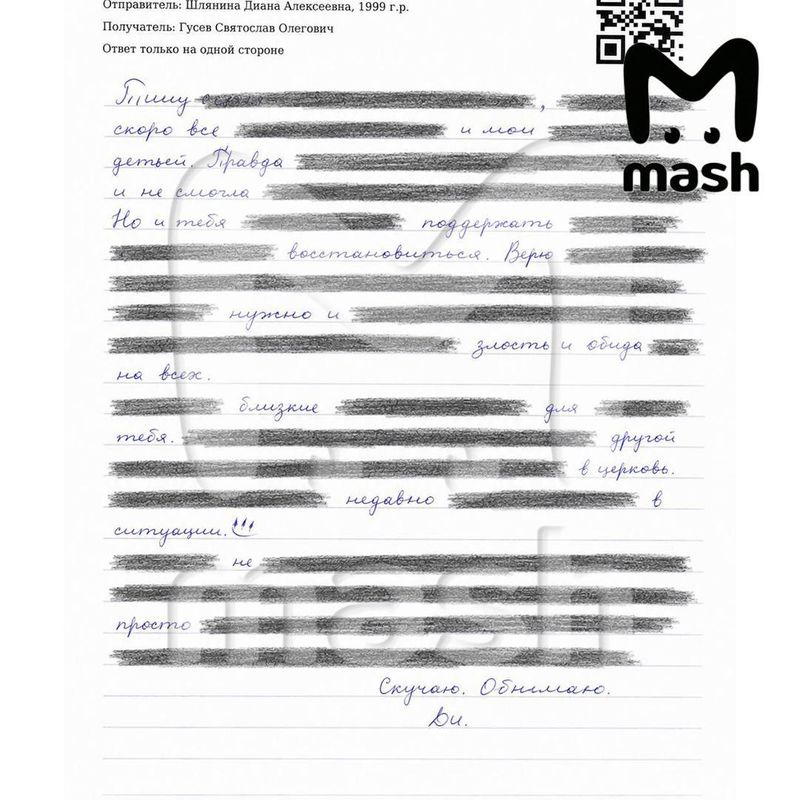 Отправитель: Шлянина Диана Алексеевна, 1999 г.р.
Получатель: Гусев Святослав Олегович
Ответ только на одной стороне
mash
Пишу ,
скоро все и мои
детьей. Правда
и не смогла
Но и тебя поддержать
восстановиться. Верю
нужно и
злость и обида
на всех.
близкие для
тебя. другой
в церковь.
недавно в
ситуации.
не
mash
просто
Скучаю. Обнимаю.
Ди.